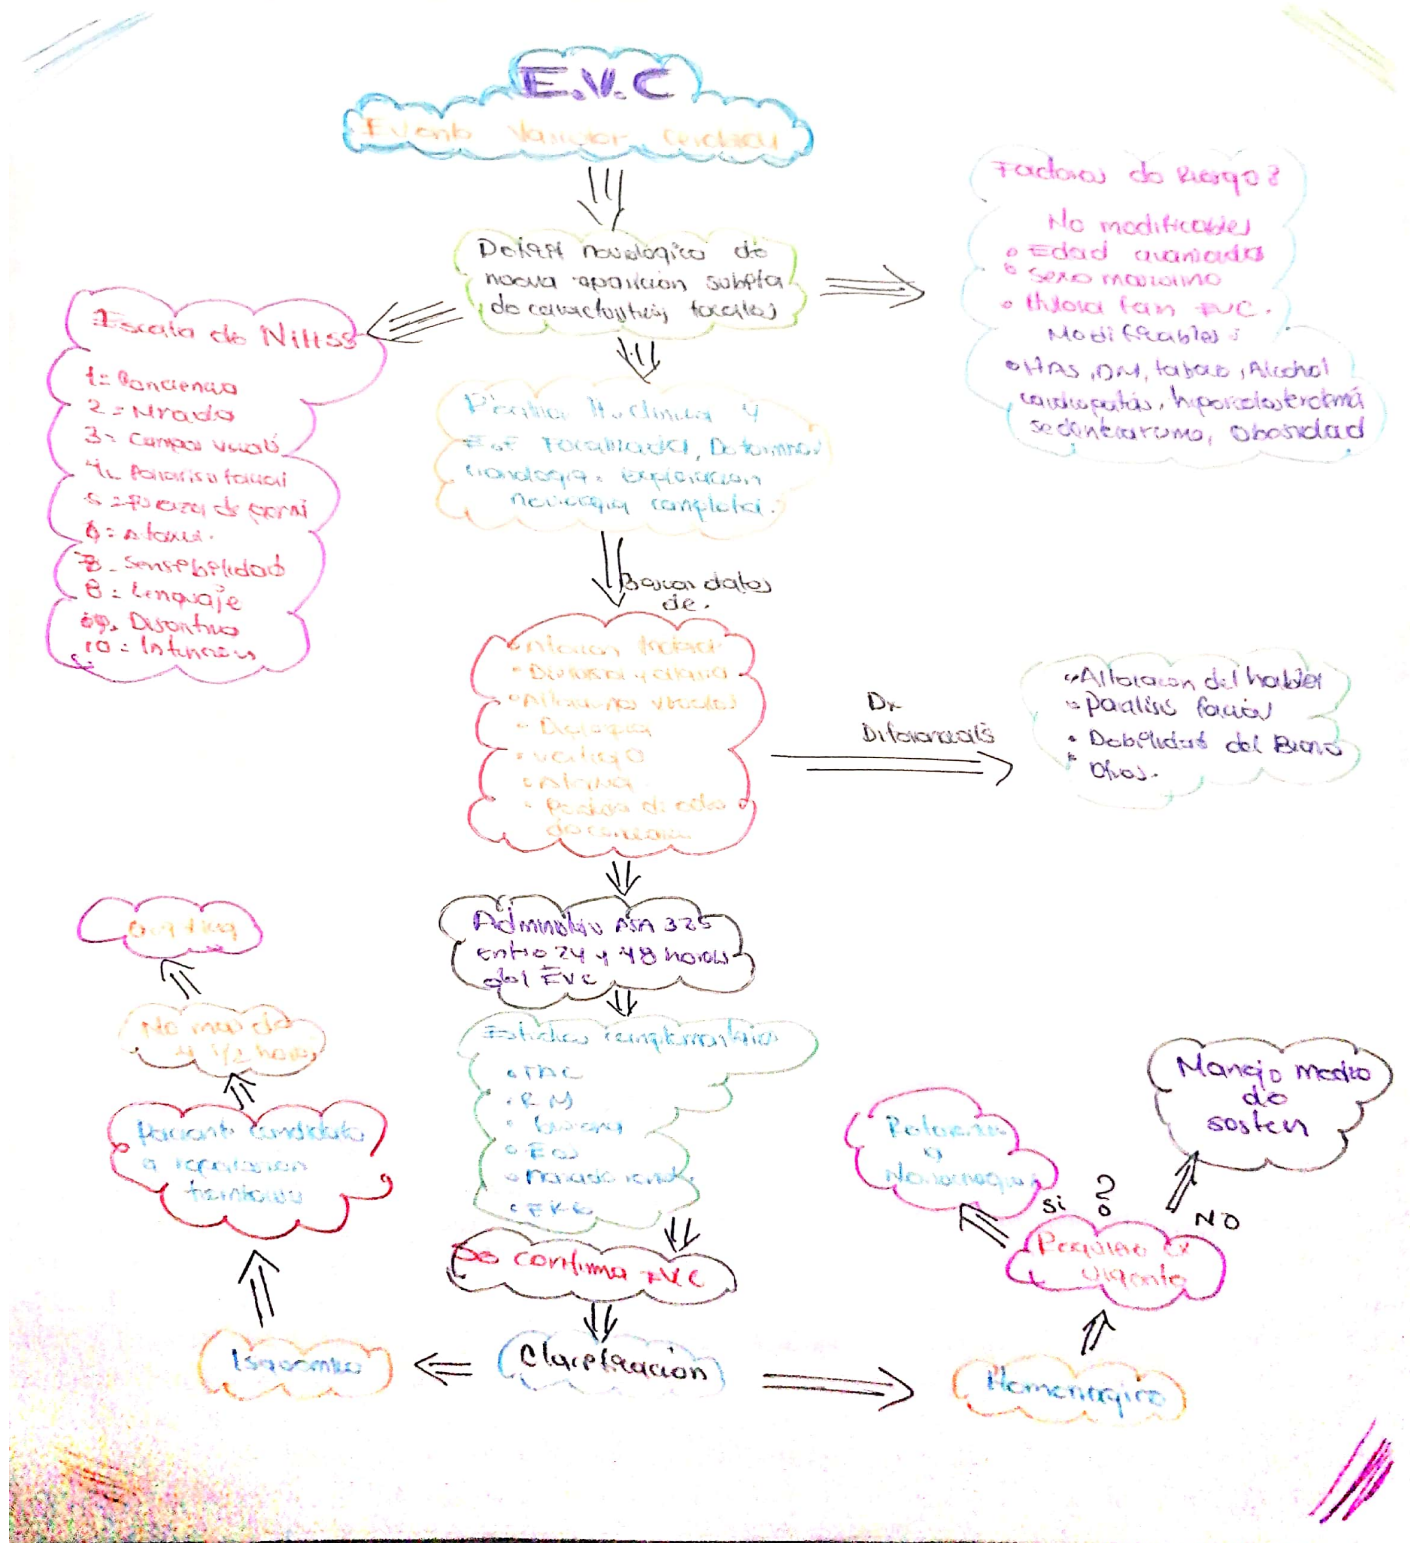 E.V.C
Evento Vascular Cerebral
Deficit neurologico de
nueva aparicion subita
de caracteristicas focales
Factores de Riesgo:
No modificables
Edad avanzada
Sexo masculino
Historia fam EVC.
Modificables:
HAS, DM, tabaco, Alcohol
cardiopatias, hipercolesterolemia
sedentarismo, Obesidad
Escala de NIHSS
1= Conciencia
2= Mirada
3= Campos visuales
4= Paralisis facial
5= Fuerza de
6= Ataxia.
7= Sensibilidad
8= Lenguaje
9. Disartria
10=
Realizar H. clinica y
E.F Focalizada, Determinar
cronologia. Exploracion
neurologica completa.
Buscar datos
de.
Disartria y
Alteraciones visuales
Diplopia
Vertigo
Ataxia
Perdida de
de
Dx
Diferenciales
Alteracion del habla
Paralisis facial
Debilidad del Brazo
Otros.
Administrar ASA 325
entre 24 y 48 horas
del EVC
Estudios complementarios
TAC
RM
EKG
Se confirma EVC
Clasificacion
Isquemico
Paciente candidato
a
No mas de
4 1/2 horas
Hemorragico
Requiere Qx
urgente
?
Si
NO
Referencia
a
Neurocirugia
Manejo medico
de
sosten